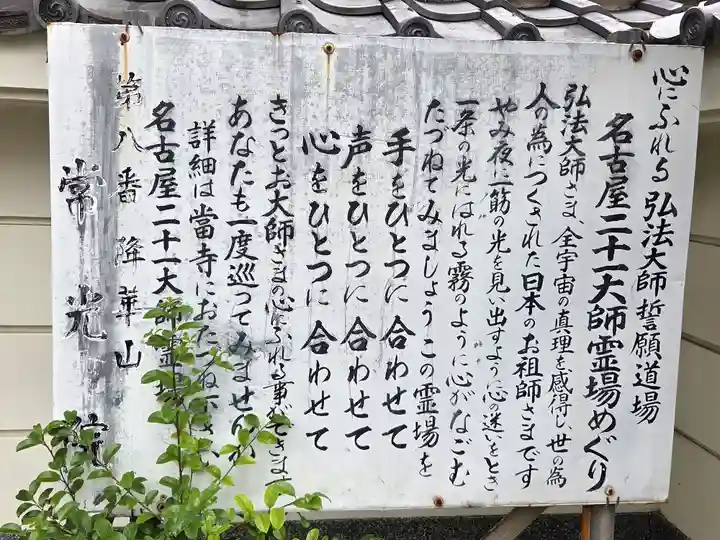 心にふれる 弘法大師 誓願道場
名古屋二十一大師霊場めぐり
弘法大師さま、全宇宙の真理を感得し、世の為
人の為につくされた日本のお祖師さまです
やみ夜に一筋の光を見い出すように心の迷いをとき
一条の光にはれる霧のように心がなごむ
たづねてみましょうこの霊場を
手をひとつに合わせて
声をひとつに合わせて
心をひとつに合わせて
きっとお大師さまの心にふれる事ができます
あなたも一度巡ってみませんか
詳細は當寺におたづね下さい
名古屋二十一大師霊場
第八番 降華山
常光寺